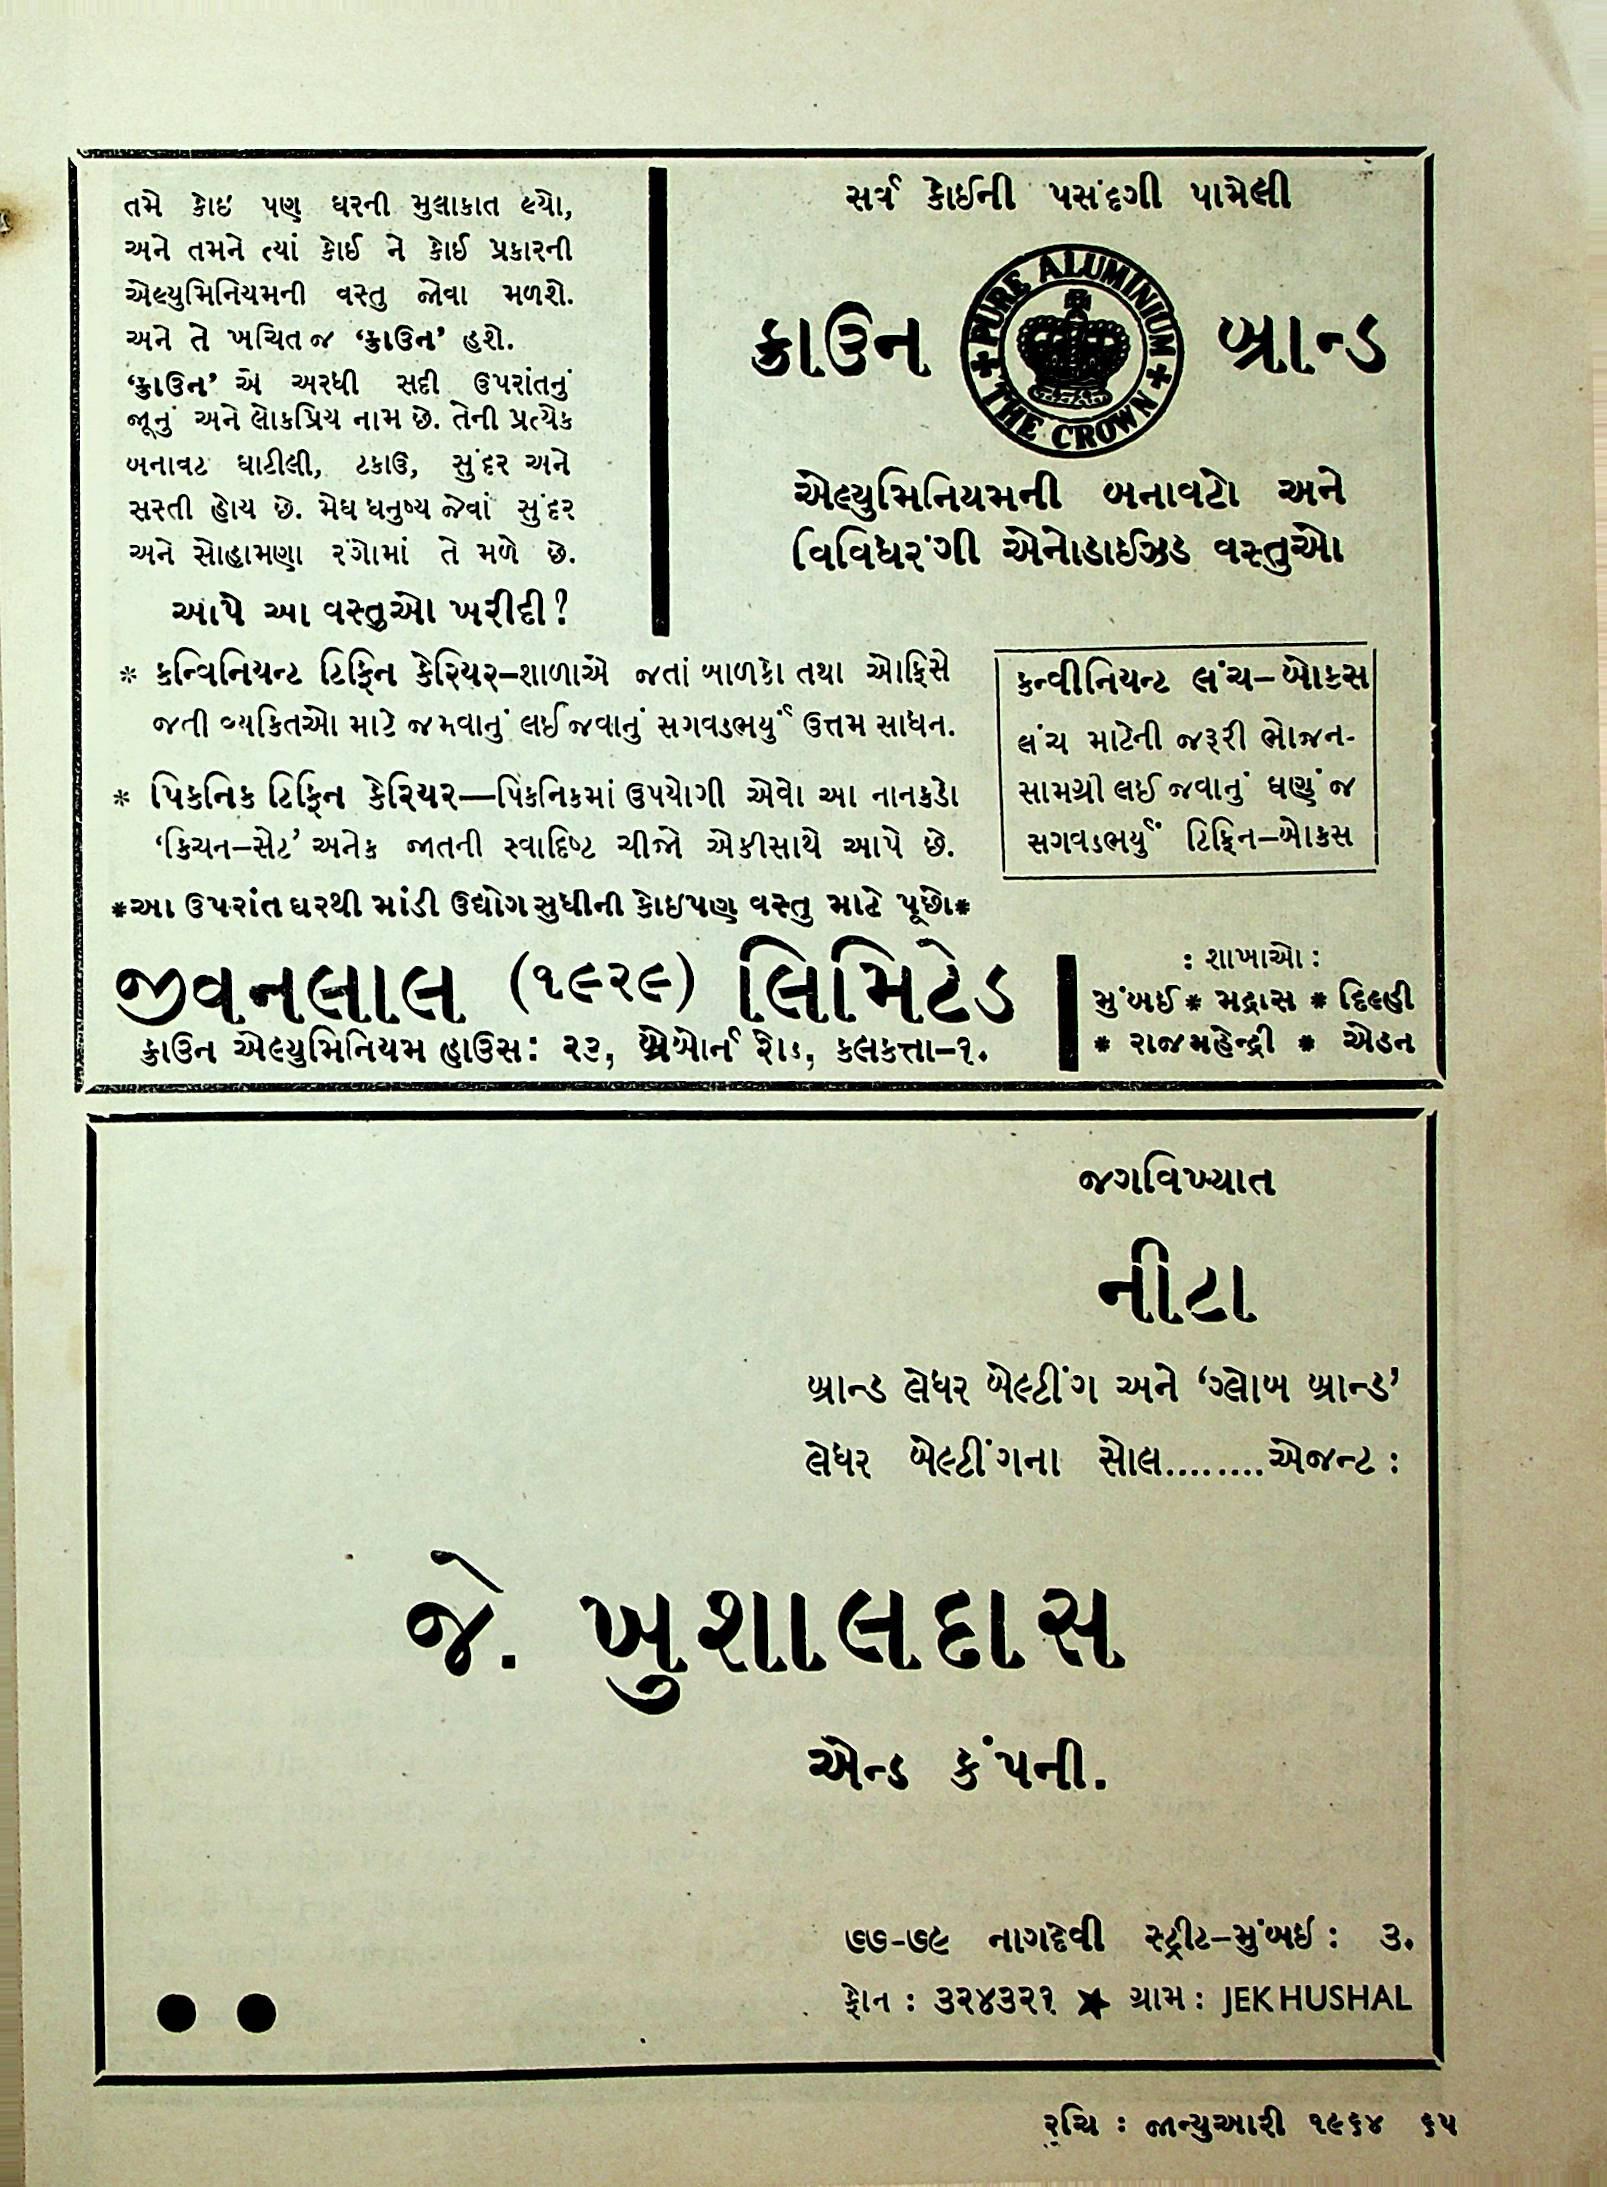 તમે કોઇ પણ ઘરની મુલાકાત લ્યો,
અને તમને ત્યાં કોઈ ને કોઈ પ્રકારની
એલ્યુમિનિયમની વસ્તુ જોવા મળશે.
અને તે ખચિત જ ‘ક્રાઉન’ હશે.
‘ક્રાઉન’ એ અરધી સદી ઉપરાંતનું
જૂનું અને લોકપ્રિય નામ છે. તેની પ્રત્યેક
બનાવટ ઘાટીલી, ટકાઉ, સુંદર અને
સસ્તી હોય છે. મેઘ ધનુષ્ય જેવાં સુંદર
અને સોહામણા રંગોમાં તે મળે છે.
આપે આ વસ્તુઓ ખરીદી?
સર્વ કોઈની પસંદગી પામેલી
ક્રાઉન
PURE ALUMINIUM
THE CROWN
બ્રાન્ડ
એલ્યુમિનિયમની બનાવટો અને
વિવિધરંગી એનોડાઈઝ્ડ વસ્તુઓ
* કન્વિનિયન્ટ ટિફિન કેરિયર—શાળાએ જતાં બાળકો તથા ઓફિસે
જતી વ્યકિતઓ માટે જમવાનું લઈ જવાનું સગવડભર્યું ઉત્તમ સાધન.
* પિકનિક ટિફિન કેરિયર—પિકનિકમાં ઉપયોગી એવો આ નાનકડો
‘કિચન—સેટ’ અનેક જાતની સ્વાદિષ્ટ ચીજો એકીસાથે આપે છે.
કન્વીનિયન્ટ લંચ—બોકસ
લંચ માટેની જરૂરી ભોજન-
સામગ્રી લઈ જવાનું ઘણું જ
સગવડભર્યું ટિફિન—બોકસ
*આ ઉપરાંત ઘરથી માંડી ઉદ્યોગ સુધીની કોઇપણ વસ્તુ માટે પૂછો*
જીવનલાલ (૧૯૨૯) લિમિટેડ
ક્રાઉન એલ્યુમિનિયમ હાઉસ: ૨૩, રોડ, કલકત્તા—૧.
: શાખાઓ :
મુંબઈ * મદ્રાસ * દિલ્હી
* રાજમહેન્દ્રી * એડન
જગવિખ્યાત
નીટા
બ્રાન્ડ લેધર બેલ્ટીંગ અને ‘ગ્લોબ બ્રાન્ડ’
લેધર બેલ્ટીંગના સોલ........એજન્ટ :
જે. ખુશાલદાસ
એન્ડ કંપની.
૭૭-૭૯ નાગદેવી સ્ટ્રીટ—મુંબઇ : ૩.
ફોન : ૩૨૪૩૨૧ ★ ગ્રામ : JEKHUSHAL
રુચિ : જાન્યુઆરી ૧૯૬૪ ૬૫